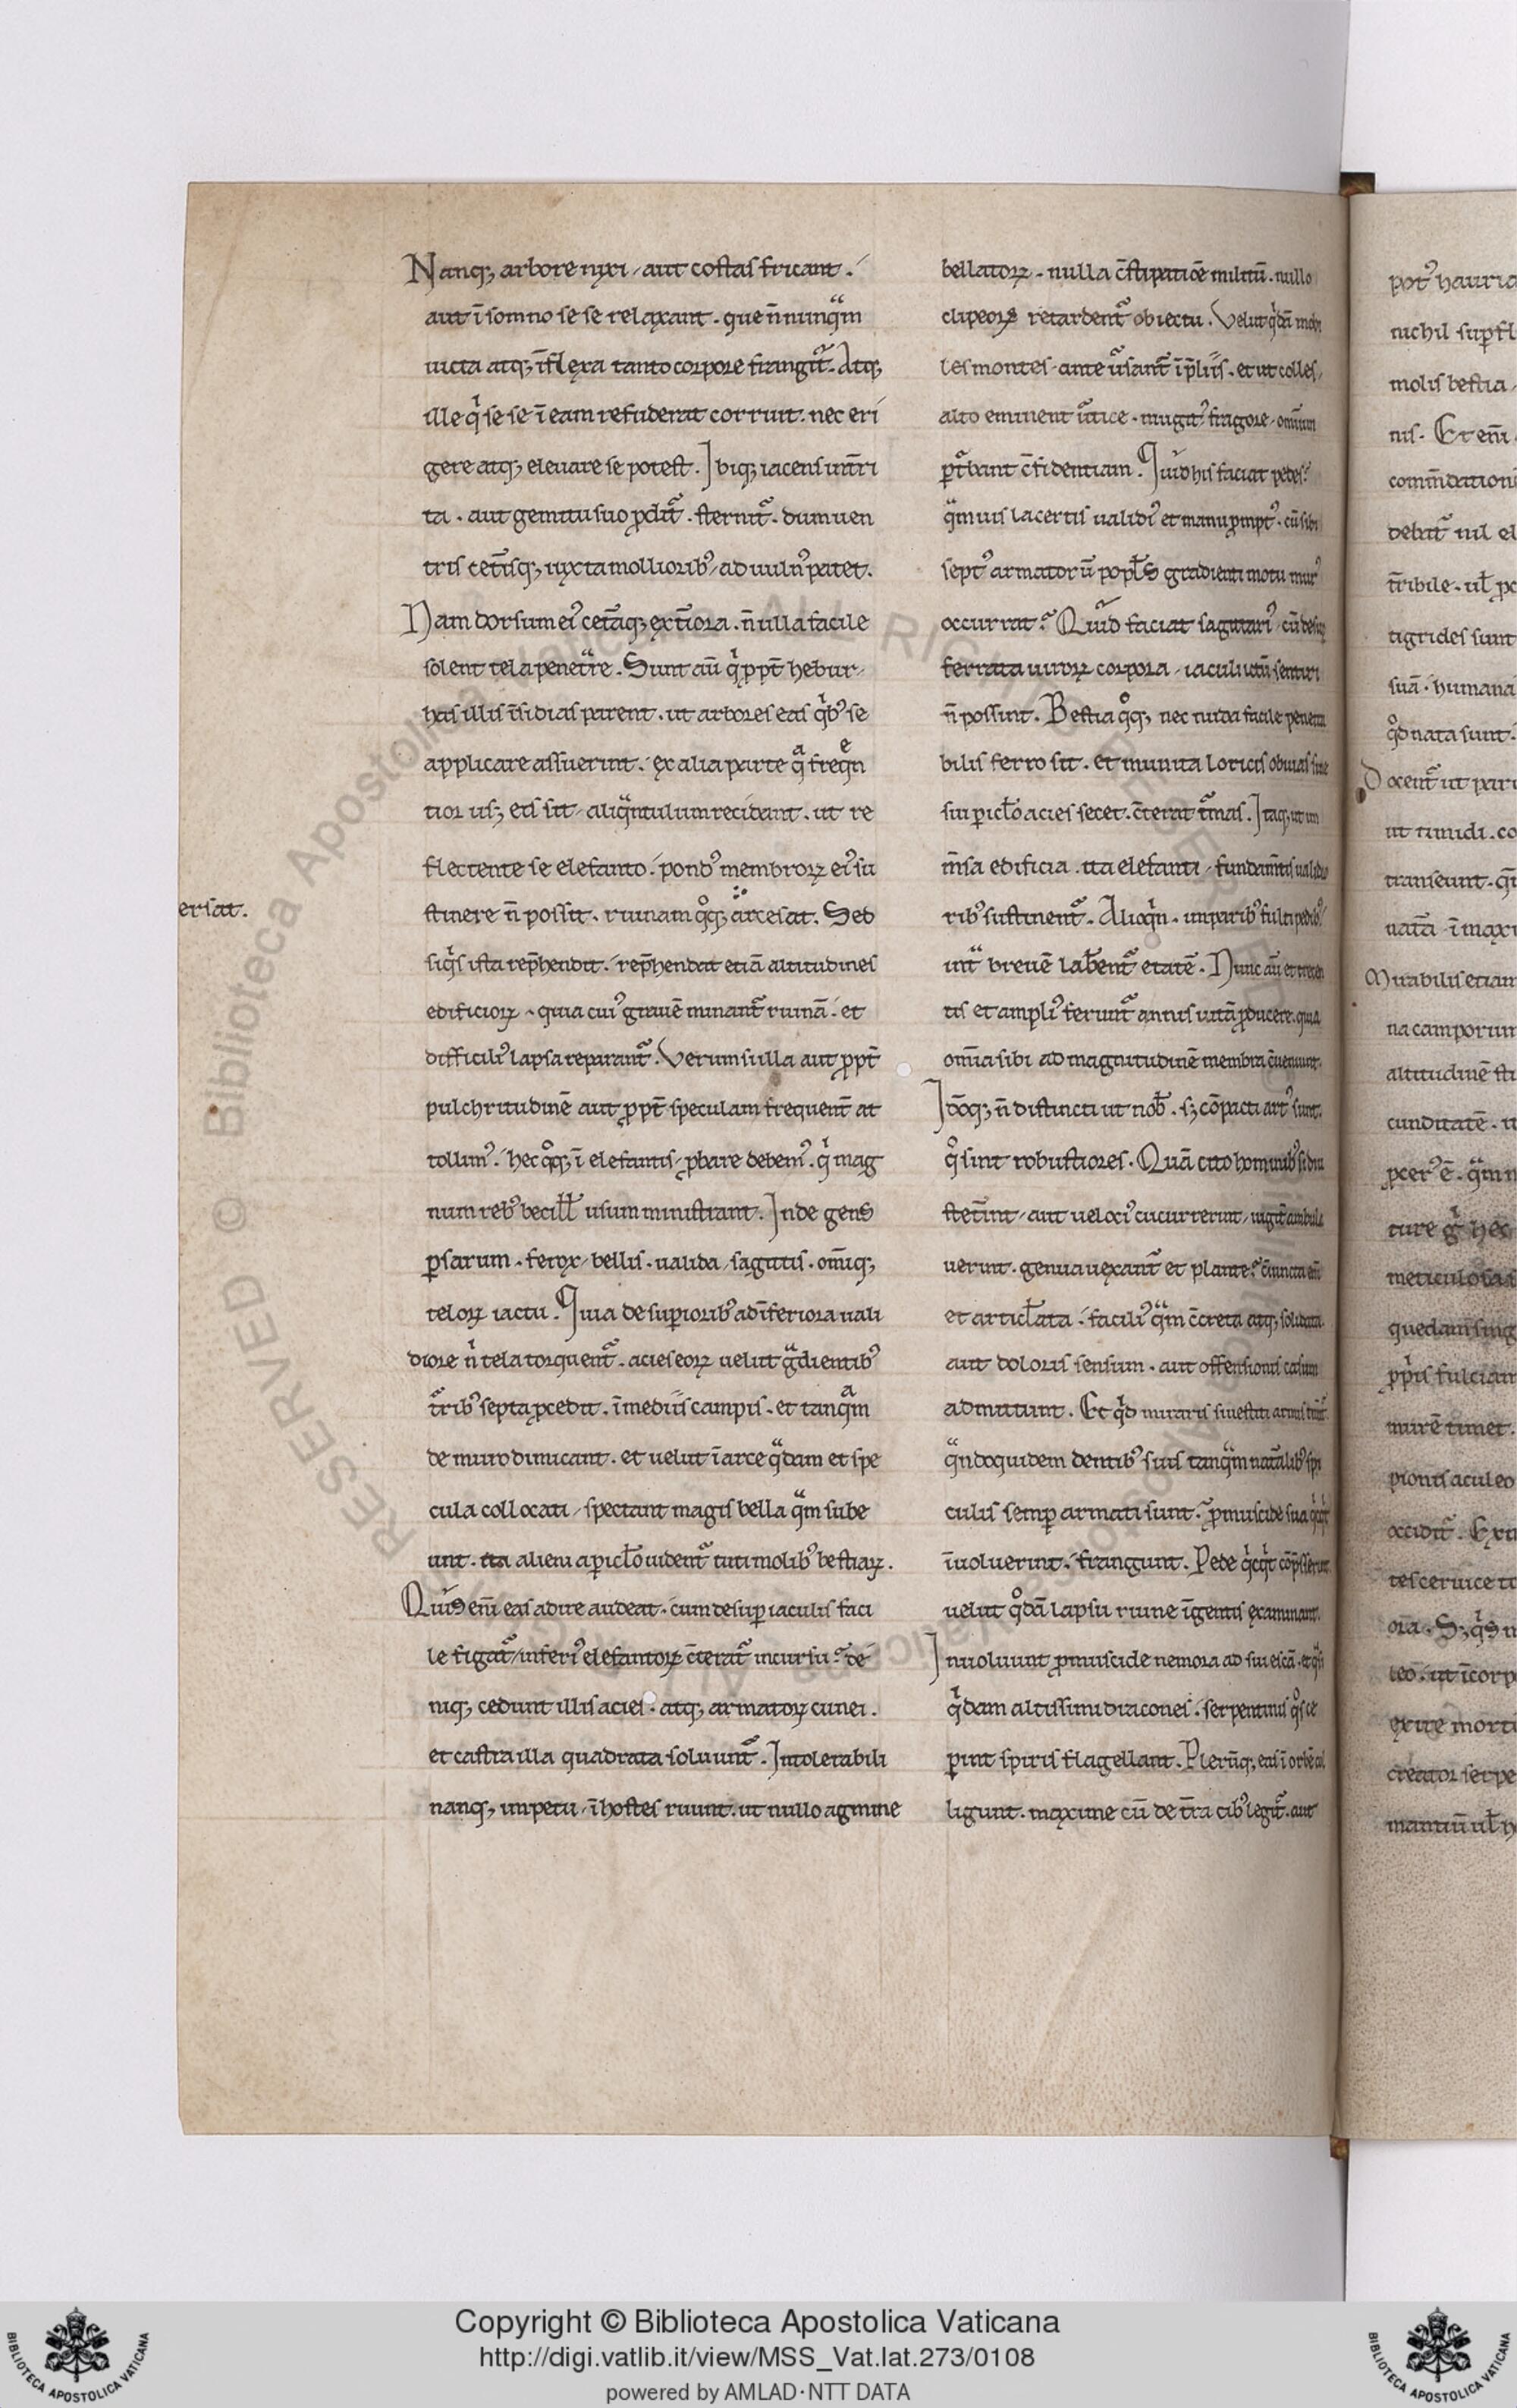 Nanq; arbore nyxi / aut costas fricant .
aut ī somno se se relaxant . que n̄ nunqͣm
uicta atq; īflexa tanto corpore frangit᷑ . Atq;
ille qͥ se se ī eam refuderat corruit . nec eri
gere atq; eleuare se potest . Ibiq; iacens int̄ri
ta . aut gemitu suo ꝓdit᷑ . sternit᷑ . dum uen
tris cet̄isq; iuxta mollioribꝰ / ad uulnꝰ patet .
Nam dorsum eiꝰ cet̄aq; ext̄iora . n̄ ulla facile
solent tela penetͣre . Sunt aū qͥ ꝓpt̄ hebur
has illis īsidias parent . ut arbores eas qͥbꝰ se
applicare assuerint . ex alia parte qͣ freqn
tior us; eis sit / aliqͣntulum recidant . ut re
flectente se elefanto . pondꝰ membroꝝ eiꝰ su
stinere n̄ possit . ruinam qͦq; arcesat . Sed
siqͥs ista rep̄hendit . rep̄hendat etiā altitudines
edificioꝝ . quia cuiꝰ grauē minant᷑ ruinā . et
difficiliꝰ lapsa reparant᷑ . Verum si illa aut ꝓpt̄
pulchritudinē aut ꝓpt̄ speculam frequent̄ at
tollimꝰ . hec qͦq; ī elefantis / ꝓbare debemꝰ . qͥ mag
num rebꝰ becill̄ usum ministrant . Inde gens
ꝑsarum . ferox / bellis . ualida / sagittis . om̄iq;
teloꝝ iactu . Quia de suꝑioribꝰ ad īferiora uali
diore nͥ tela torquent᷑ . acies eoꝝ uelut gͣdientibꝰ
t᷑ribꝰ septa ꝓcedit . ī mediis campis . et tanqͣm
de muro dimicant . et uelut ī arce qͣdam et spe
cula collocati / spectant magis bella qͣm sube
unt . ita alieni a ꝑicl̄o uident᷑ tuti molibꝰ bestiaꝝ .
Quis eni᷑ eas adire audeat . cum desuꝑ iaculis faci
le figat᷑ / inferiꝰ elefantoꝝ c̄terat᷑ incursu . de
niq; cedunt illis acies . atq; armatoꝝ cunei .
et castra illa quadrata soluunt᷑ . Intolerabili
nanq; impetu / ī hostes ruunt . ut nullo agmine
ersat .
bellatoꝝ . nulla c̄stipatiōe militū . nullo
clipeoꝝ retardent᷑ obiectu . Velut qͥdā mobi
les montes . ante uͣsant᷑ ī p̄liis . et ut colles /
alto eminent uͣtice . mugitꝰ fragore / omniū
ꝑt᷑bant c̄fidentiam . Quid his faciat pedes
qͣmuis lacertis ualidꝰ et manu ꝓmptꝰ . cū sibi
septꝰ armatorū popl̄s gradienti motu murꝰ
occurrat . Quid faciat sagittariꝰ / cū
ferrata uiroꝝ corpora / iaculi ictū sentiri
n̄ possint . Bestia qͦq; nec nuda facile penetra
bilis ferro sit . et munita loricis obuias sine
sui ꝑicl̄o acies secet . c̄terat t᷑mas . Itaq; ut im
m̄sa edificia . ita elefanti / fundam̄tis ualidio
ribꝰ sustinent᷑ . Alioqͥn . imparibꝰ fulti pedibꝰ
intͣ breuē labent᷑ etatē . Nunc aū et trecen
tis et ampliꝰ ferunt᷑ annis uitā ꝓducere . quia
om̄ia sibi ad magnitudinē membra c̄ueniunt .
Idōq; n̄ distincti ut nob̄ . s; cōpacti artꝰ sunt .
qͦ sint robustiores . Quā cito hominibꝰ si diu
stet̄int / aut uelociꝰ cucurrerint / iugit̄ ambula
uerint . genua uexant᷑ et plante .
et articl̄ata . faciliꝰ qͣm c̄creta atq; solidata
aut doloris sensum . aut offensionis casum
admittunt . Et qͥd miraris si uestiti armis
qͣndoquidem dentibꝰ suis tanqͣm nat᷑alibꝰ spi
culis semꝑ armati sunt . ꝓmuscide sua
īuoluerint . frangunt . Pede
uelut qͦdā lapsu ruine īgentis examinant .
Inuoluunt ꝓmuscide nemora ad sui escā .
qͥdam altissimi dracones . serpentinis qͦs ce
ꝑint spiris flagellant . Plerūq; eas ī orbē col
ligunt . maxime cū de t̄ra cibꝰ legit᷑ . aut
Copyright © Biblioteca Apostolica Vaticana
http://digi.vatlib.it/view/MSS_Vat.lat.273/0108
powered by AMLAD·NTT DATA